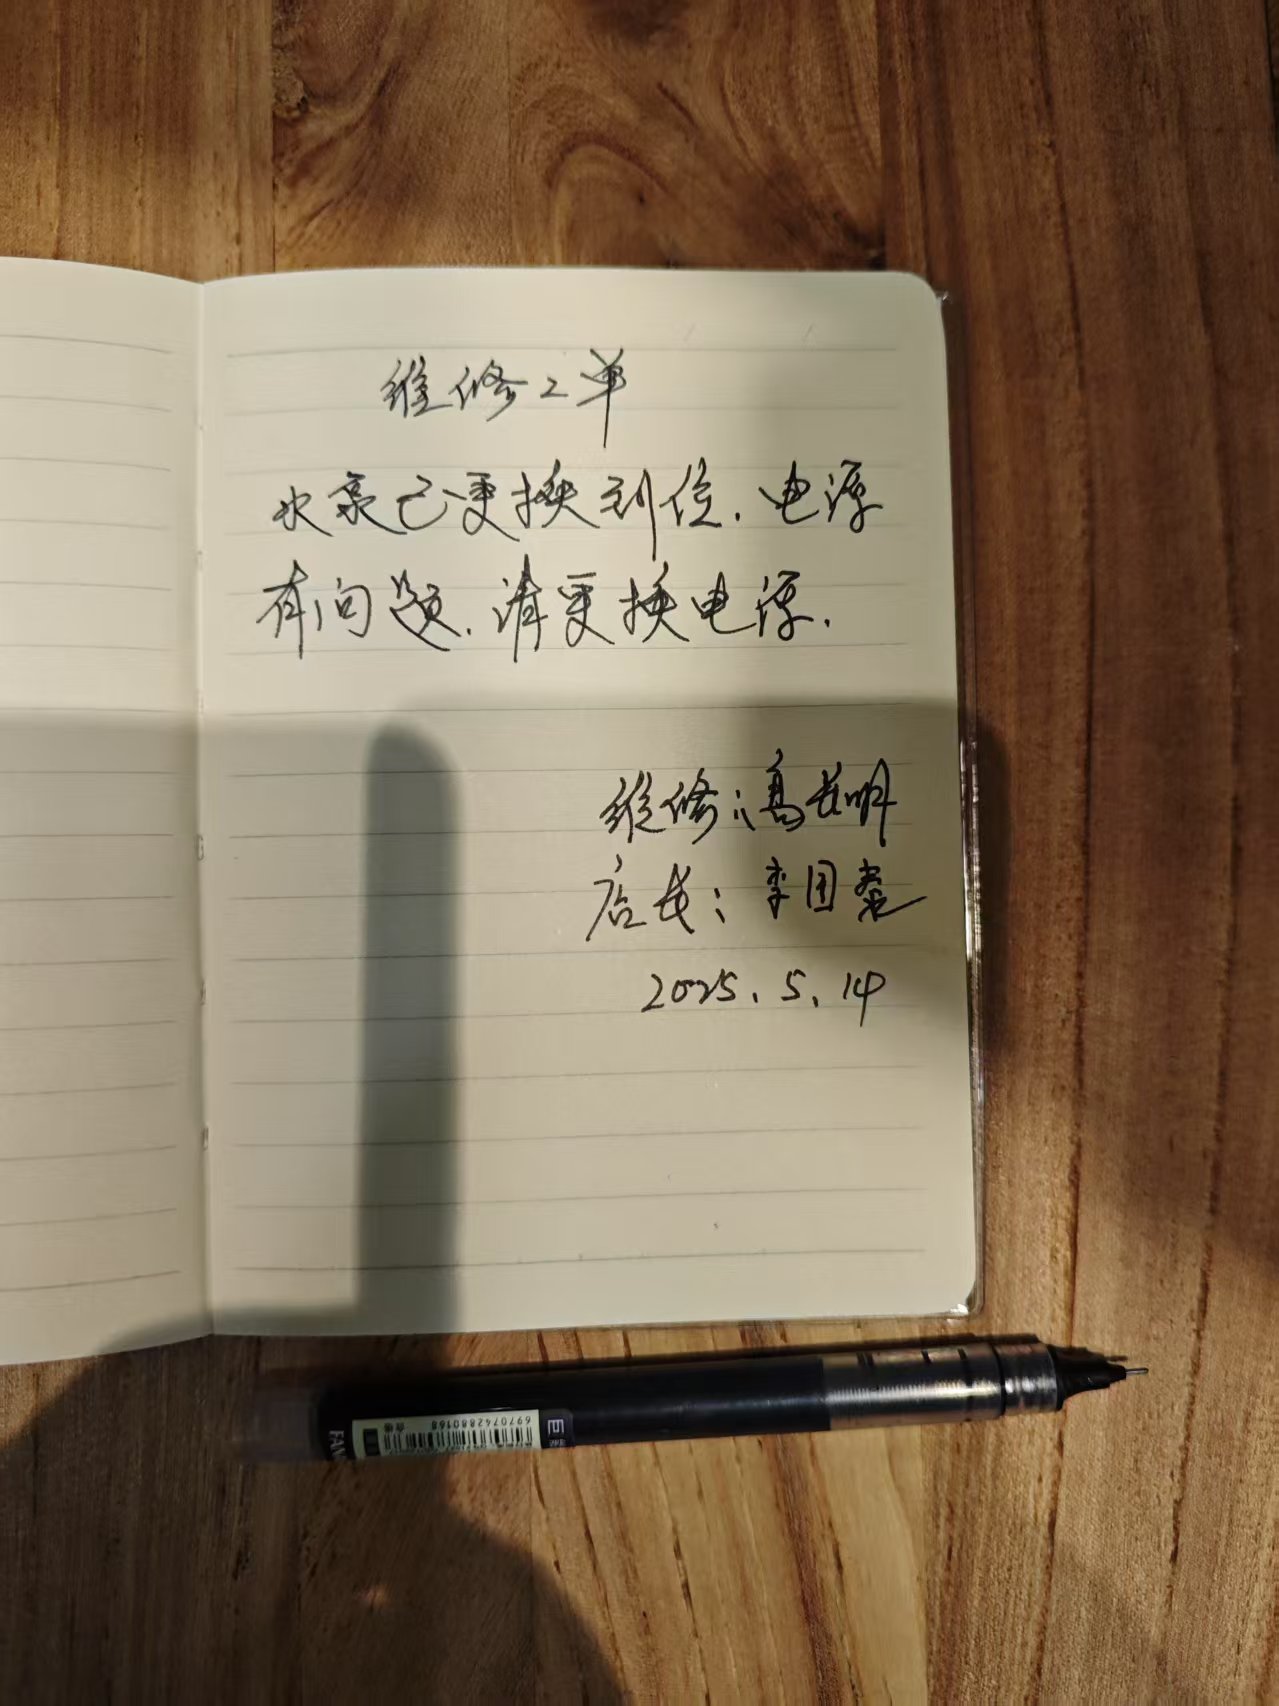 维修工单
水泵已更换到位.电源
有问题.请更换电源.
维修:高长明
店长:李国
2025.5.14
6970742880168
合格
FAN